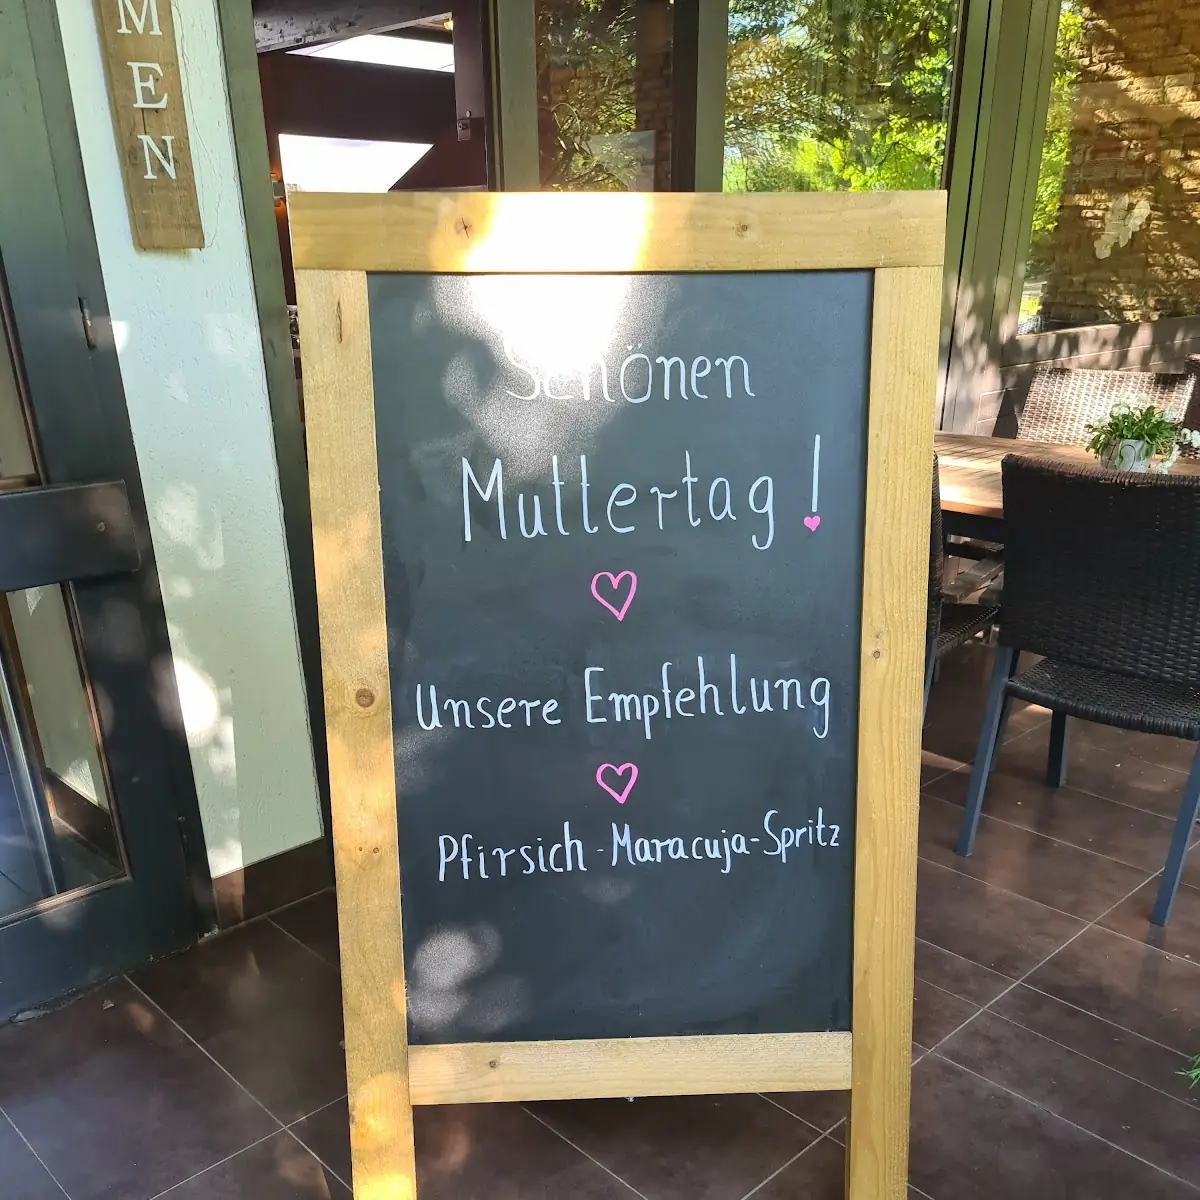 MEN
Schönen
Muttertag!
Unsere Empfehlung
Pfirsich-Maracuja-Spritz